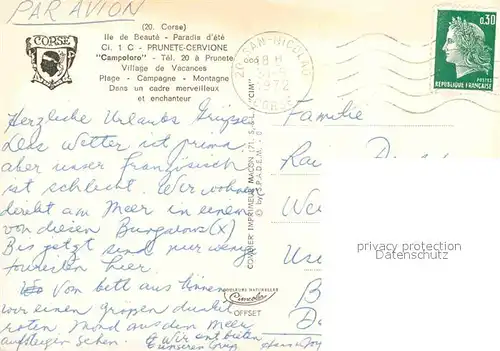 PAR AVION
(20. Corse)
CORSE
Ile de Beauté - Paradis d'été
Ci. 1 C - PRUNETE-CERVIONE
"Campoloro" - Tél. 20 à Prunete
Village de Vacances
Plage - Campagne - Montagne
Dans un cadre merveilleux
et enchanteur
SAN-NICOLAO
18 H
1972
CORSE
0,30
POSTES
REPUBLIQUE FRANÇAISE
"CIM"
COMBIER IMPRIMEUR MACON (71. S.
© by S.P.A.D.E.M.
COULEURS NATURELLES
Cimcolor
OFFSET
Herzliche Urlaubs Grüsse
Das Wetter ist prima
aber unser französisch
ist schlecht. Wir wohnen
direkt am Meer in einem
von diesen Bungalows (X)
Bis jetzt sind nur wenig
touristen hier.
Vom bett aus können
wir einen großen dunkel
roten Mond aus dem Meer
aufsteigen sehen.
Wir entbieten
unseren
Familie
privacy protection
Datenschutz